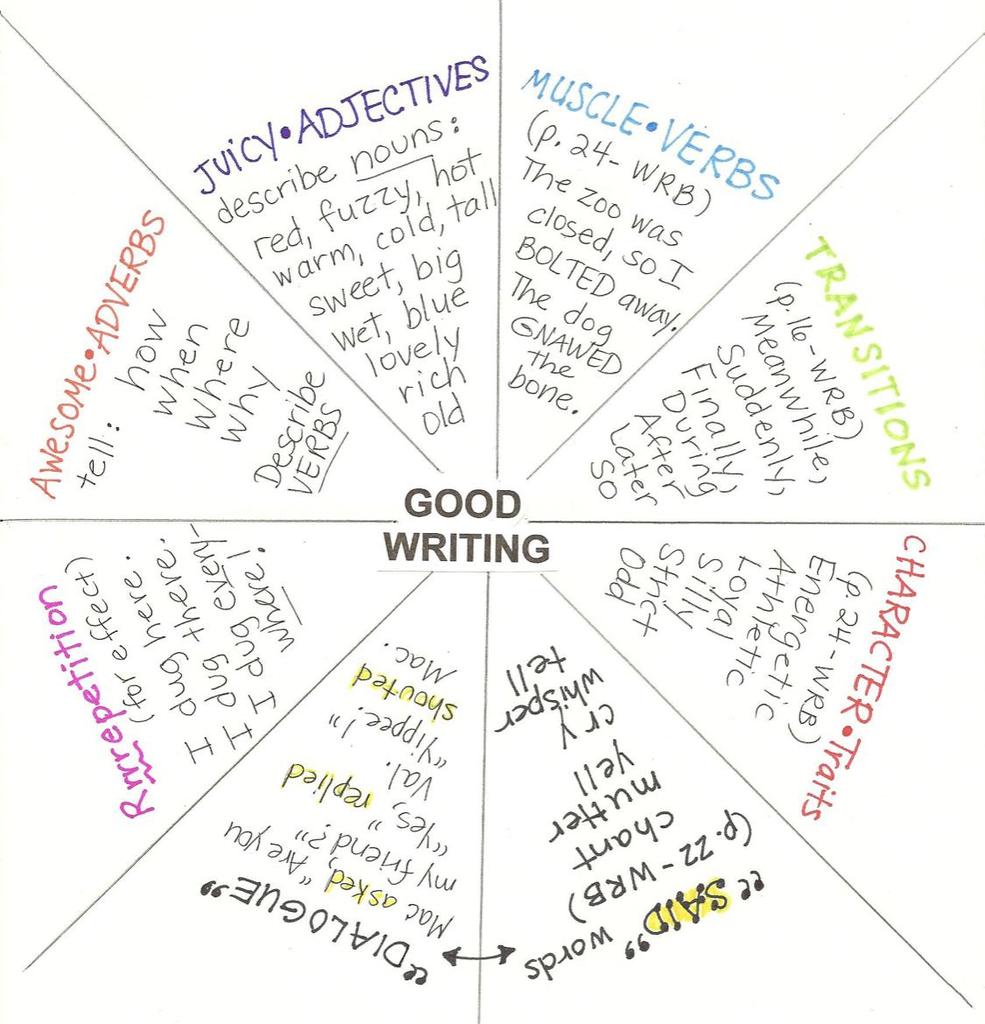 GOOD
WRITING
JUICY•ADJECTIVES
describe nouns:
red, fuzzy, hot
warm, cold, tall
sweet, big
wet, blue
lovely
rich
old
MUSCLE•VERBS
(p. 24- WRB)
The zoo was
closed, so I
BOLTED away.
The dog
GNAWED
the
bone.
TRANSITIONS
(p.16-WRB)
Meanwhile,
Suddenly,
Finally,
During
After
Later
So
CHARACTER•Traits
(p 24-WRB)
Energetic
Athletic
Loyal
Silly
Strict
Odd
"SAID" words
(p.22-WRB)
chant
mutter
yell
cry
whisper
tell
"DIALOGUE"
Mac asked, "Are you
my friend?"
"Yes," replied
Val.
"Yippee!"
shouted
Mac.
Rrrrepetition
(for effect)
I dug here.
I dug there.
I dug every-
where!
Awesome•ADVERBS
tell: how
when
where
why
Describe
VERBS